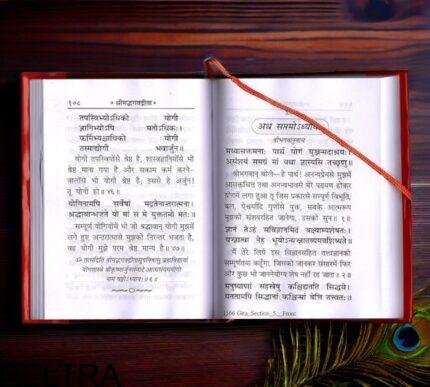 १०८ * श्रीमद्भगवद्गीता *
तपस्विभ्योऽधिको योगी
ज्ञानिभ्योऽपि मतोऽधिकः।
कर्मिभ्यश्चाधिको योगी
तस्माद्योगी भवार्जुन॥
योगी तपस्वियोंसे श्रेष्ठ है, शास्त्रज्ञानियोंसे भी
श्रेष्ठ माना गया है और सकाम कर्म करने-
वालोंसे भी योगी श्रेष्ठ है; इससे हे अर्जुन!
तू योगी हो॥ ४६॥
योगिनामपि सर्वेषां मद्गतेनान्तरात्मना।
श्रद्धावान्भजते यो मां स मे युक्ततमो मतः॥
सम्पूर्ण योगियोंमें भी जो श्रद्धावान् योगी मुझमें
लगे हुए अन्तरात्मासे मुझको निरन्तर भजता है,
वह योगी मुझे परम श्रेष्ठ मान्य है॥ ४७॥
ॐ तत्सदिति श्रीमद्भगवद्गीतासूपनिषत्सु ब्रह्मविद्यायां
योगशास्त्रे श्रीकृष्णार्जुनसंवादे आत्मसंयमयोगो
नाम षष्ठोऽध्यायः॥ ६॥
अथ सप्तमोऽध्यायः
श्रीभगवानुवाच
मय्यासक्तमनाः पार्थ योगं युञ्जन्मदाश्रयः।
असंशयं समग्रं मां यथा ज्ञास्यसि तच्छृणु॥
श्रीभगवान् बोले—हे पार्थ! अनन्यप्रेमसे मुझमें
आसक्तचित्त तथा अनन्यभावसे मेरे परायण होकर
योगमें लगा हुआ तू जिस प्रकारसे सम्पूर्ण विभूति,
बल, ऐश्वर्यादि गुणोंसे युक्त, सबके आत्मरूप
मुझको संशयरहित जानेगा, उसको सुन॥ १॥
ज्ञानं तेऽहं सविज्ञानमिदं वक्ष्याम्यशेषतः।
यज्ज्ञात्वा नेह भूयोऽन्यज्ज्ञातव्यमवशिष्यते॥
मैं तेरे लिये इस विज्ञानसहित तत्त्वज्ञानको
सम्पूर्णतया कहूँगा, जिसको जानकर संसारमें फिर
और कुछ भी जाननेयोग्य शेष नहीं रह जाता॥ २॥
मनुष्याणां सहस्रेषु कश्चिद्यतति सिद्धये।
यततामपि सिद्धानां कश्चिन्मां वेत्ति तत्त्वतः॥
1566 Gita_Section_5__Front
BELTRA